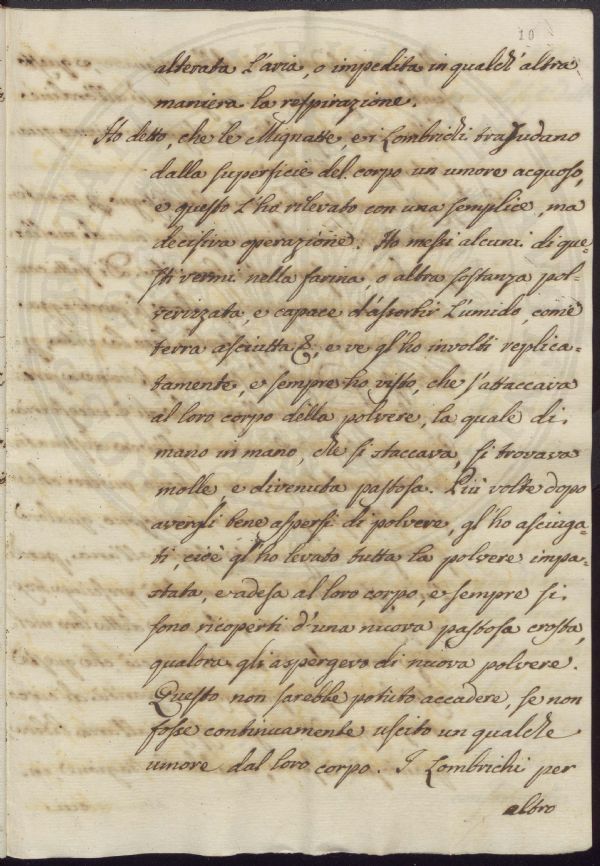 10
alterata l'aria, o impedita in qualch'altra
maniera la respirazione.
Ho detto, che le Mignatte, e i Lombrichi trasudano
dalla superficie del corpo un umore acquoso,
e questo l'ho rilevato con una semplice, ma
decisiva operazione. Ho messi alcuni di que-
sti vermi nella farina, o altra sostanza pol-
verizzata, e capace d'assorbir l'umido, come
terra asciutta &, e ve gl'ho involti replica-
tamente, e sempre ho visto, che s'attaccava
al loro corpo della polvere, la quale di
mano in mano, che si staccava, si trovava
molle, e divenuta pastosa. Più volte dopo
avergli bene aspersi di polvere, gl'ho asciuga-
ti, cioè gl'ho levato tutta la polvere impa-
stata, e adesa al loro corpo, e sempre si
sono ricoperti d'una nuova pastosa crosta,
qualora gli aspergevo di nuova polvere.
Questo non sarebbe potuto accadere, se non
fosse continuamente uscito un qualche
umore dal loro corpo. I Lombrichi per
altro